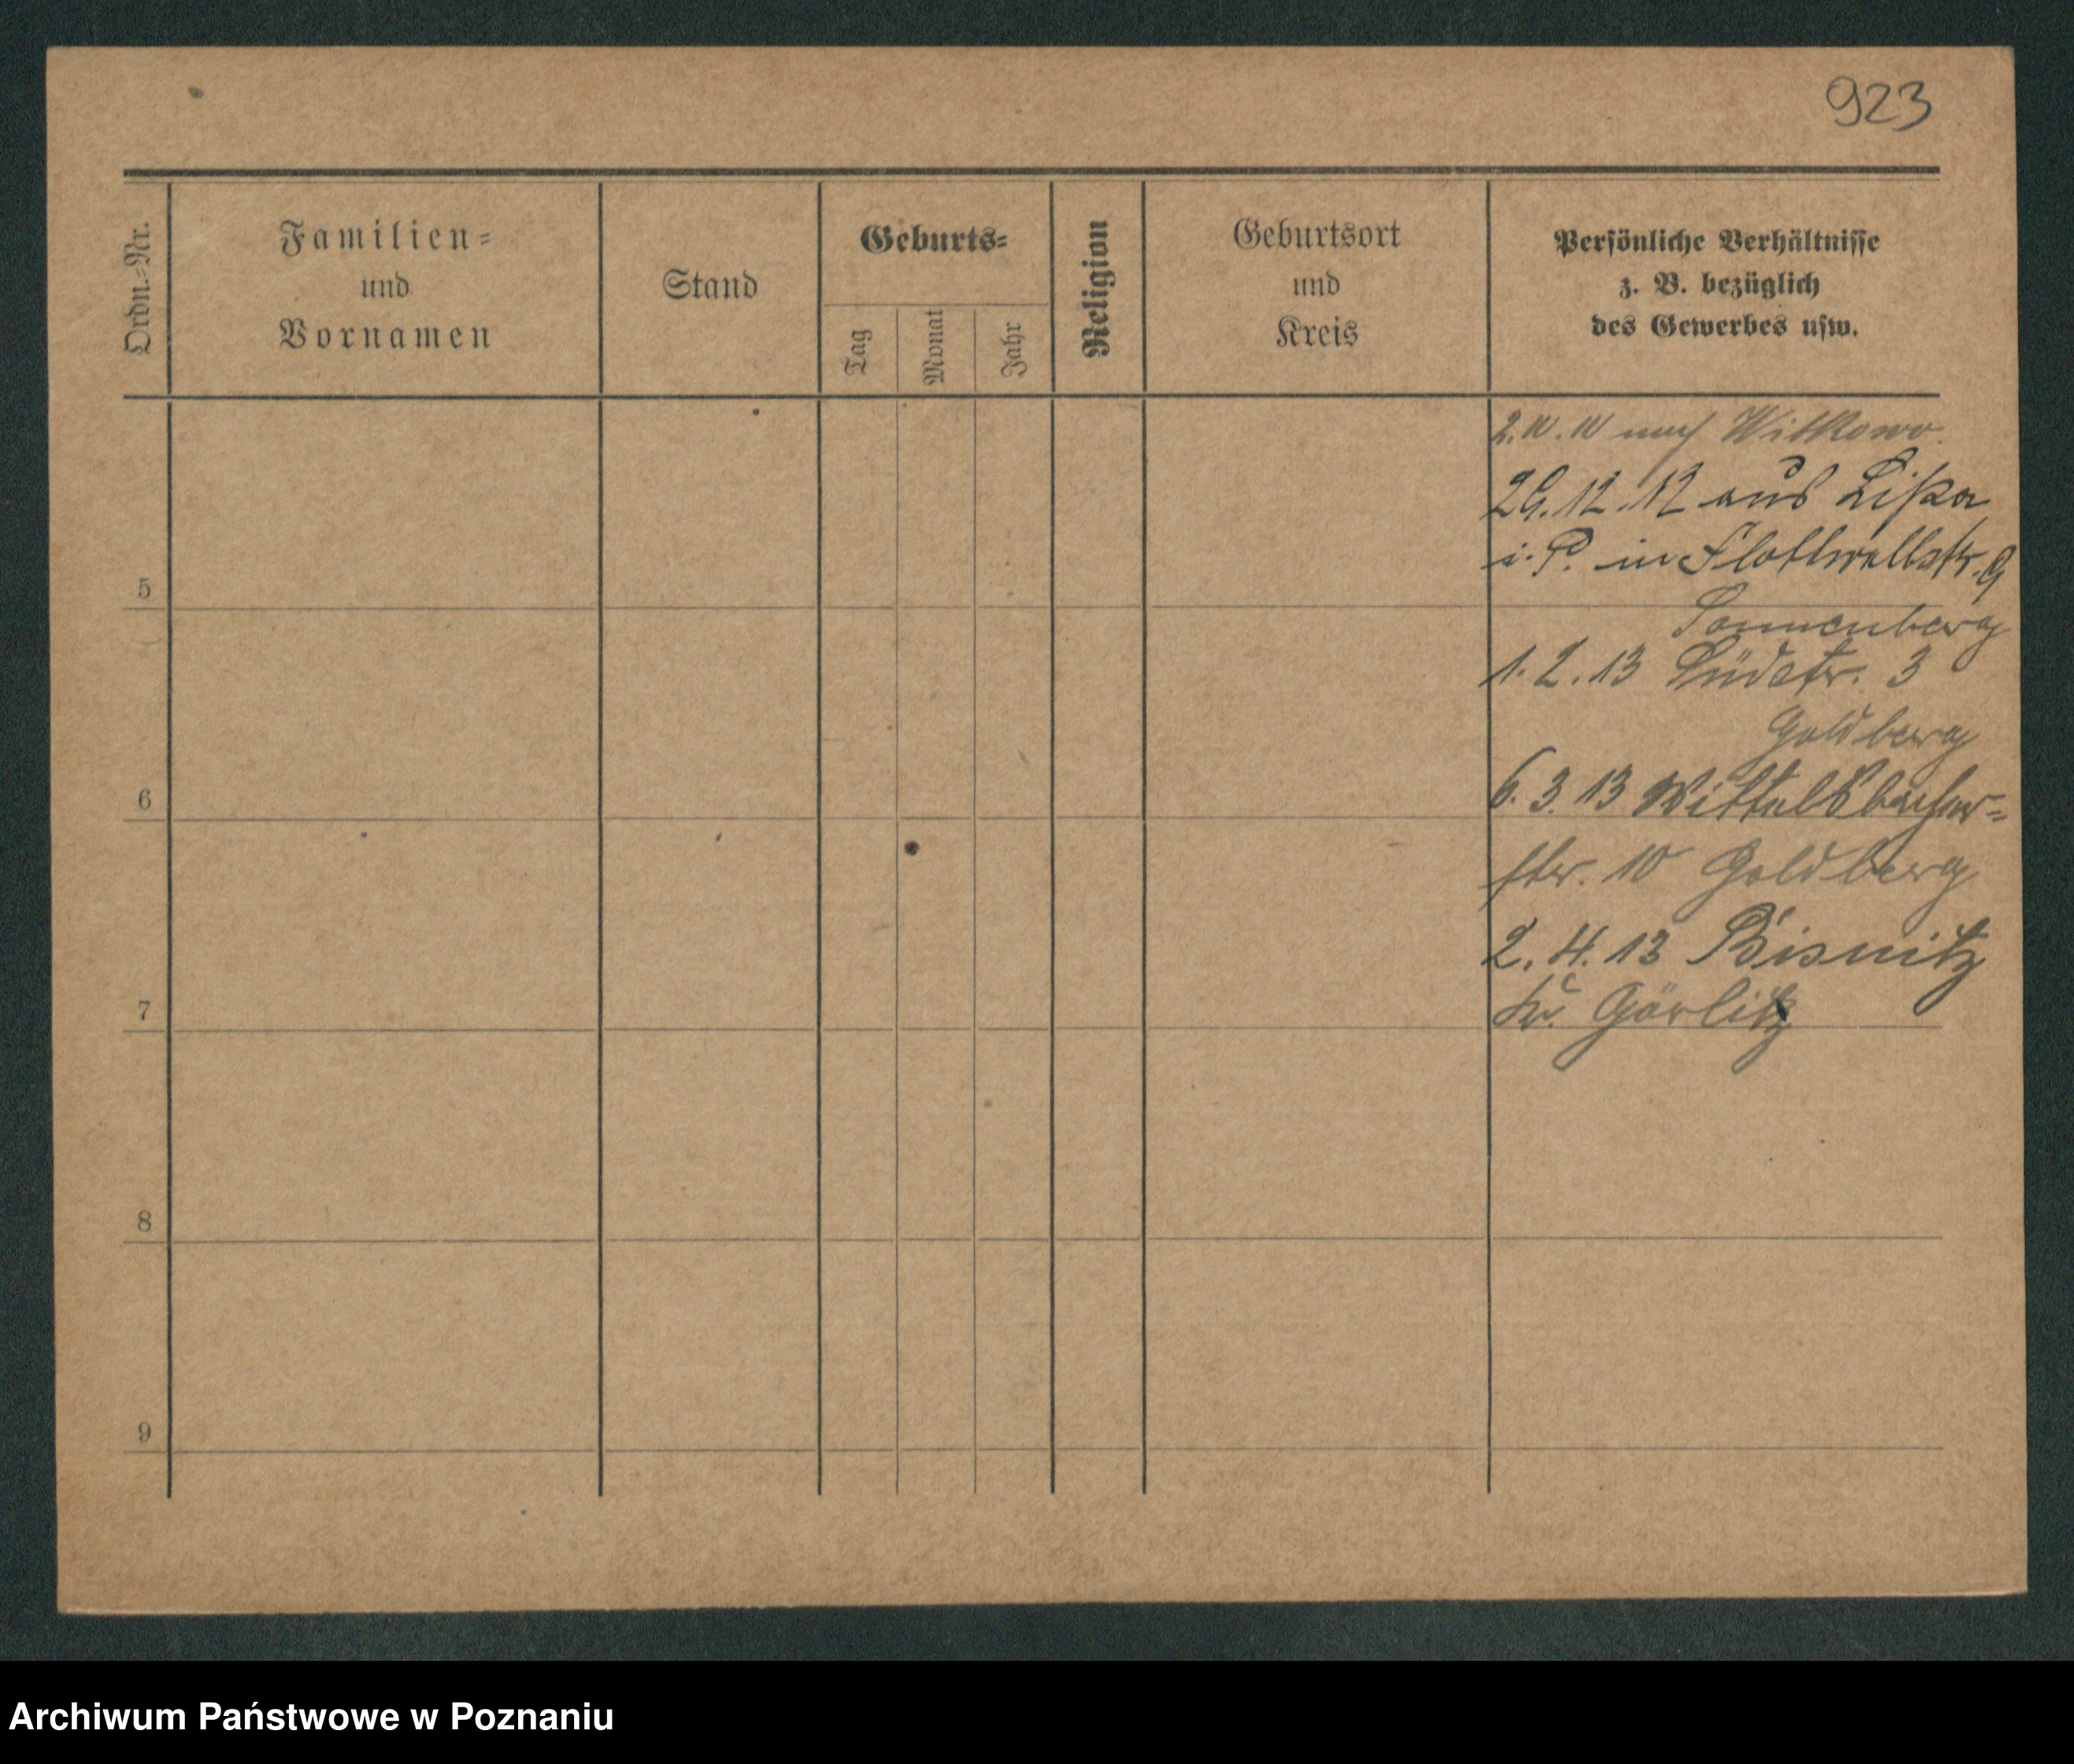 923
Ordn.-Nr.
Familien-
und
Vornamen
Stand
Geburts-
Tag
Monat
Jahr
Religion
Geburtsort
und
Kreis
Persönliche Verhältnisse
z. B. bezüglich
des Gewerbes usw.
2.10.10 nach Witkowo.
29.12.12 aus Lissa
i. P. in Flottwellstr. 9
5
Sonnenberg
1.2.13 Südstr. 3
Goldberg
6
6.3.13 Wittelsbacher-
str. 10 Goldberg
2.4.13 Bisnitz
7
Kr. Görlitz
8
9
Archiwum Państwowe w Poznaniu